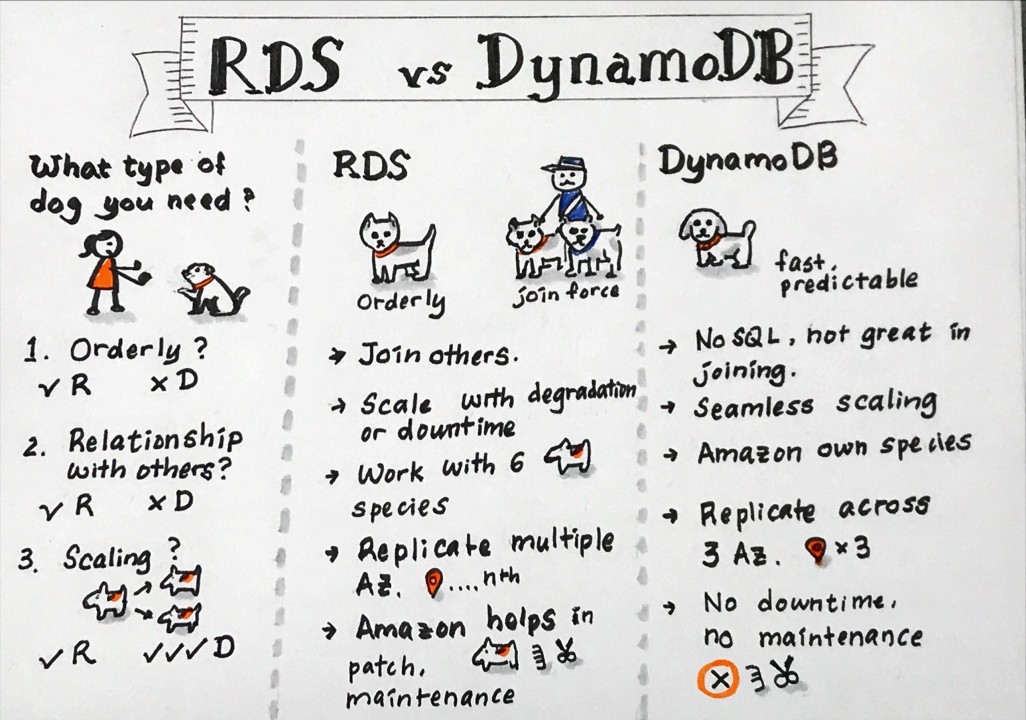 RDS vs DynamoDB
What type of
dog you need?
1. Orderly?
✓ R ✗ D
2. Relationship
with others?
✓ R ✗ D
3. Scaling?
✓ R ✓✓✓ D
RDS
Orderly
join force
→ Join others.
→ Scale with degradation
or downtime
→ Work with 6
species
→ Replicate multiple
AZ. ....nth
→ Amazon helps in
patch,
maintenance
DynamoDB
fast,
predictable
→ No SQL, not great in
joining.
→ Seamless scaling
→ Amazon own species
→ Replicate across
3 AZ. ×3
→ No downtime,
no maintenance